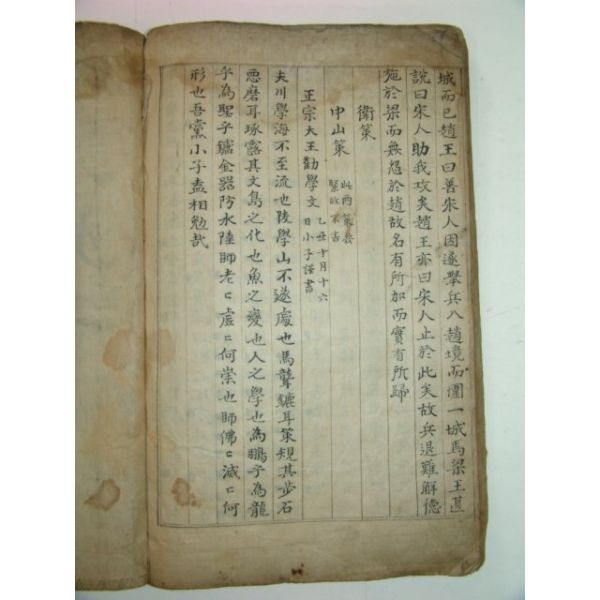 城而已趙王曰善宋人因遂擧兵入趙境而圍一城焉梁王甚
說曰宋人助我攻矣趙王亦曰宋人止於此矣故兵退難解德
施於梁而無怨於趙故名有所加而實有所歸
衛策
中山策 此兩策長
繁故不書
正宗大王勸學文 乙丑十月十六
日小子謹書
夫川學海不至流也陵學山不遂處也馬聾轆耳策規其步石
惡磨耳琢露其文鳥之化也魚之變也人之學也為鵬乎為龍
乎為聖乎鑪金器防水陸師老〻虛〻何崇也師佛〻滅〻何
形也吾黨小子盍相勉哉